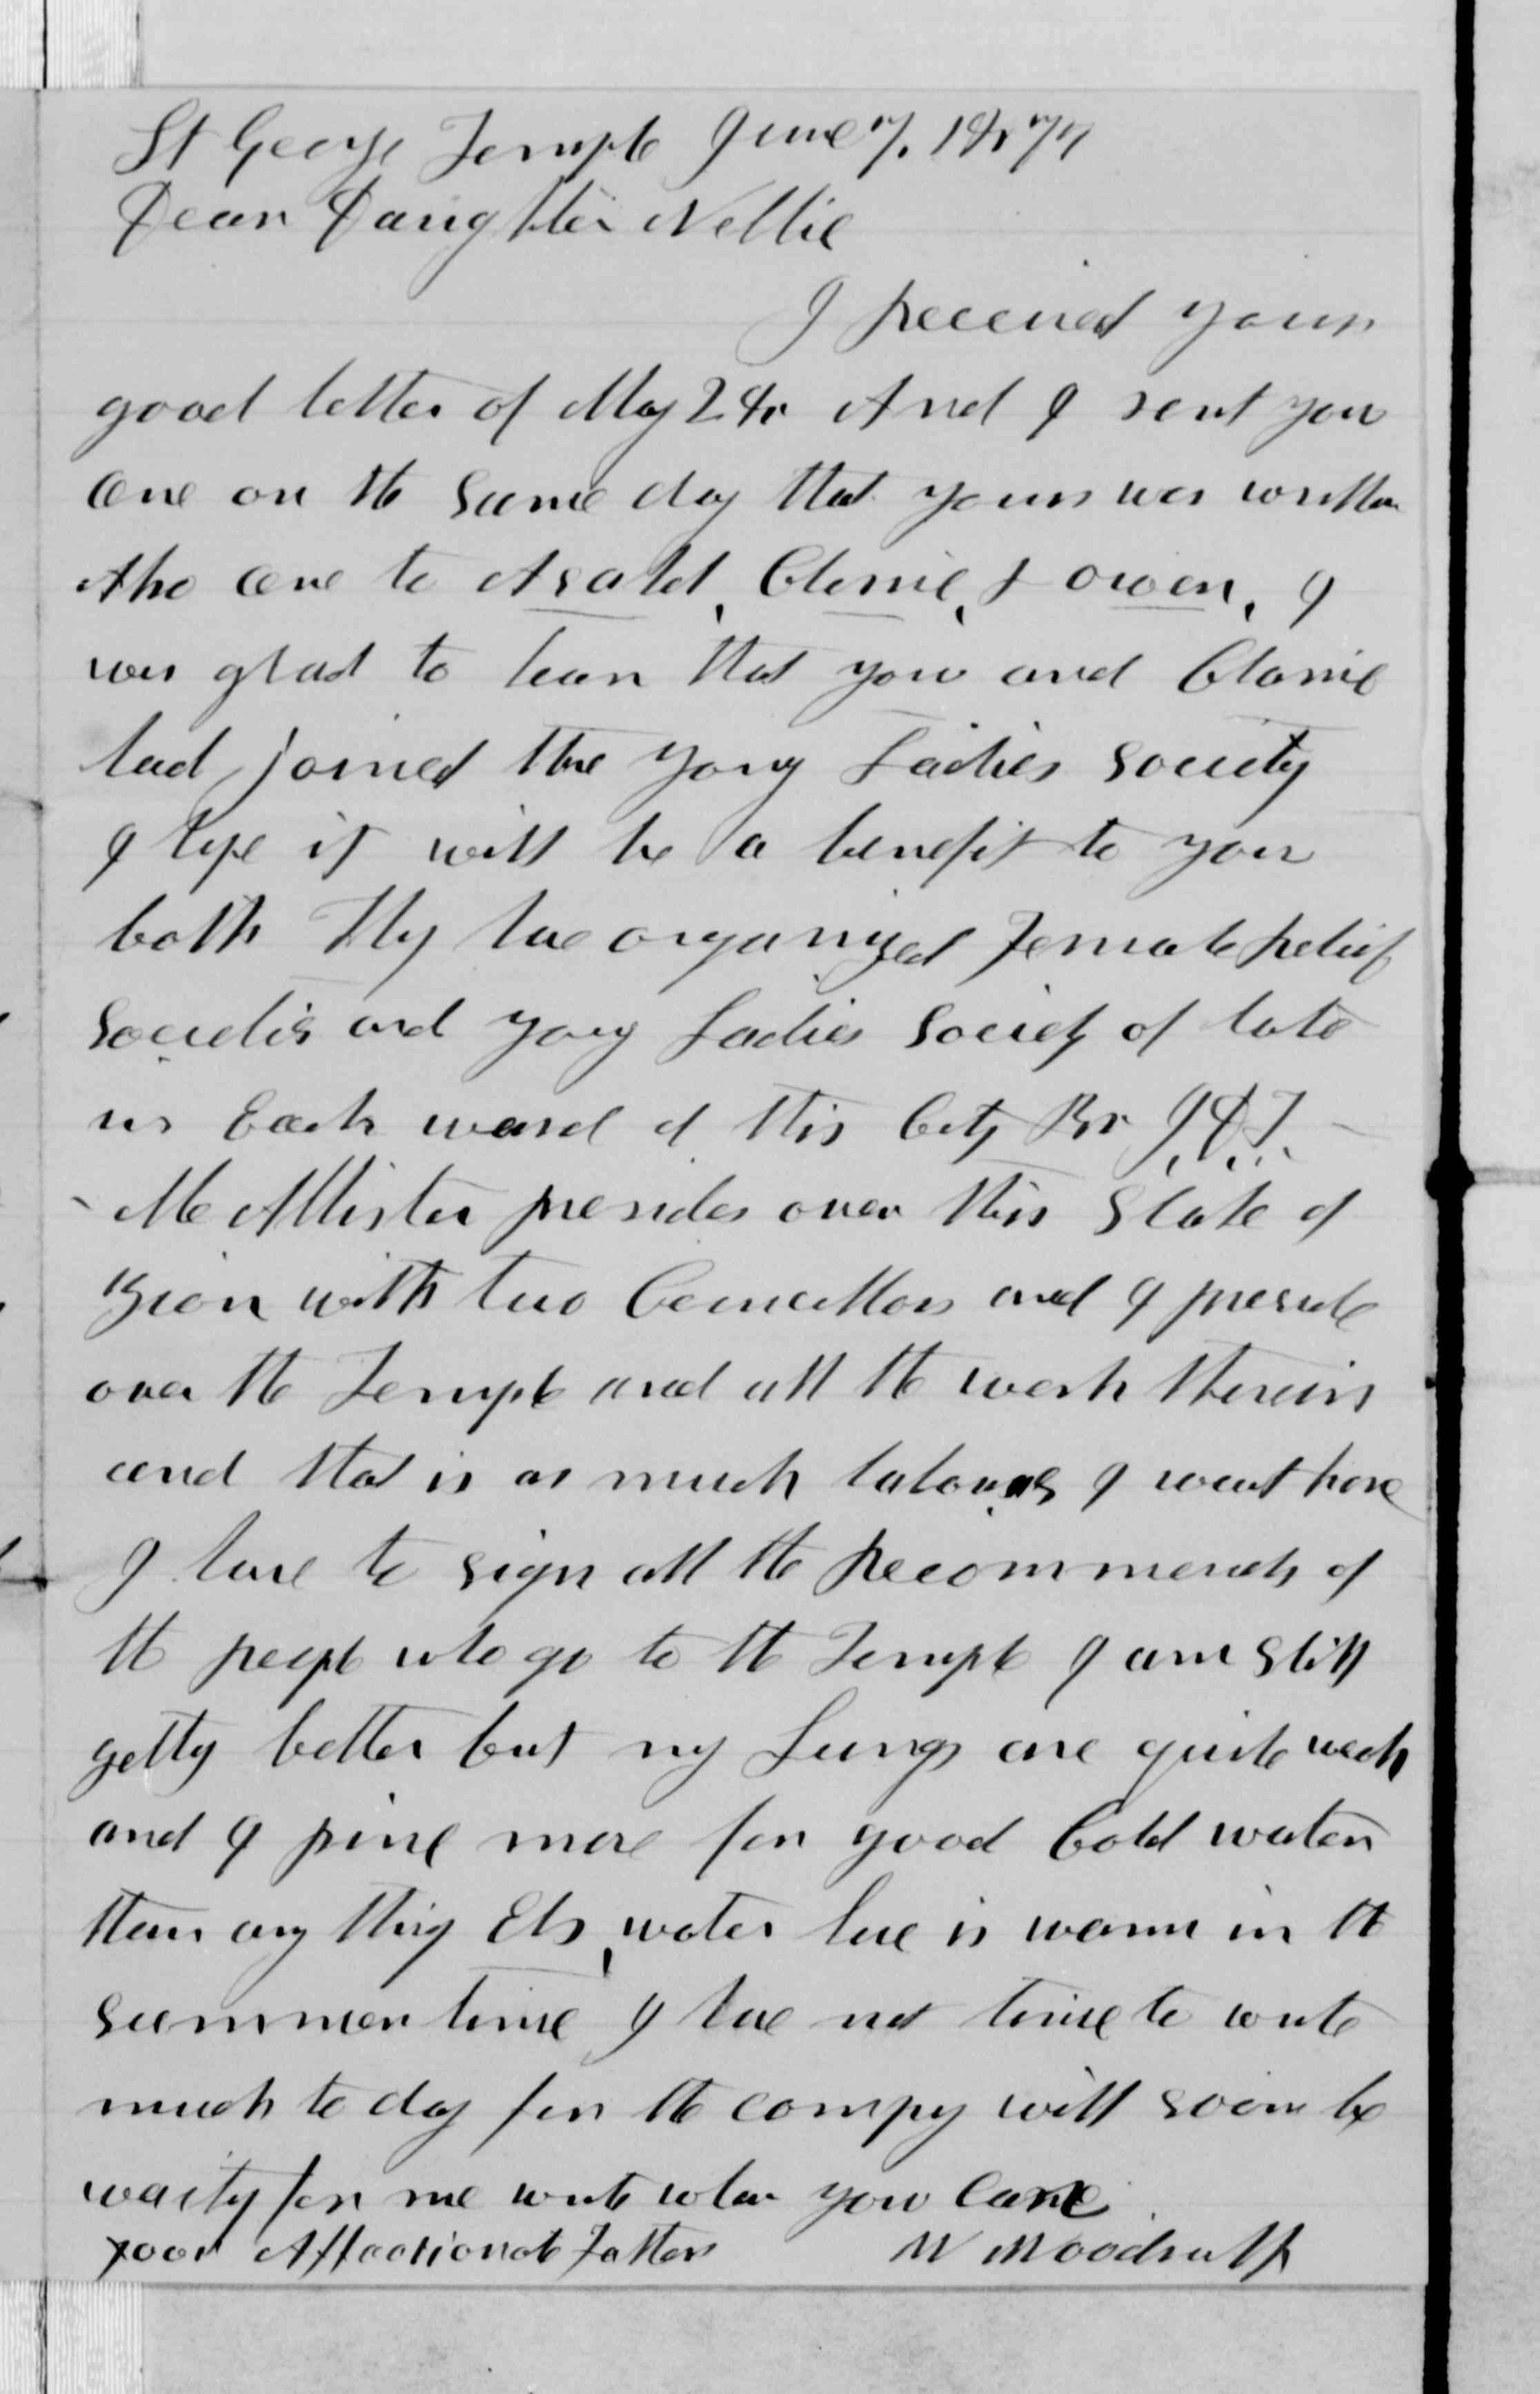 St George Temple June 7, 1877
Dear Daughter Nellie
I Received your
good letter of May 28 And I sent you
one on the same day that yours was written
Also one to Asahel, Clarie, & Owen, I
was glad to hear that you and Clarie
had joined the Yong Ladies Society
I hope it will be a benefit to you
both They have organized Female Relief
Societis and yong Ladies Society of late
in Each ward of this City Br J. D. T.
McAllister presides over this Stake of
Zion with two Councillors and I preside
over the Temple and all the work therein
and that is as much labor as I want here
I have to sign all the Recommends of
the people who go to the Temple I am still
getting better but my Lungs are quite weak
and I pine more for good Cold water
than any thing Els, water here is warm in the
summer time I have not time to write
much to day for the company will soon be
waiting for me write when you Can
your Affectionate Father W Woodruff